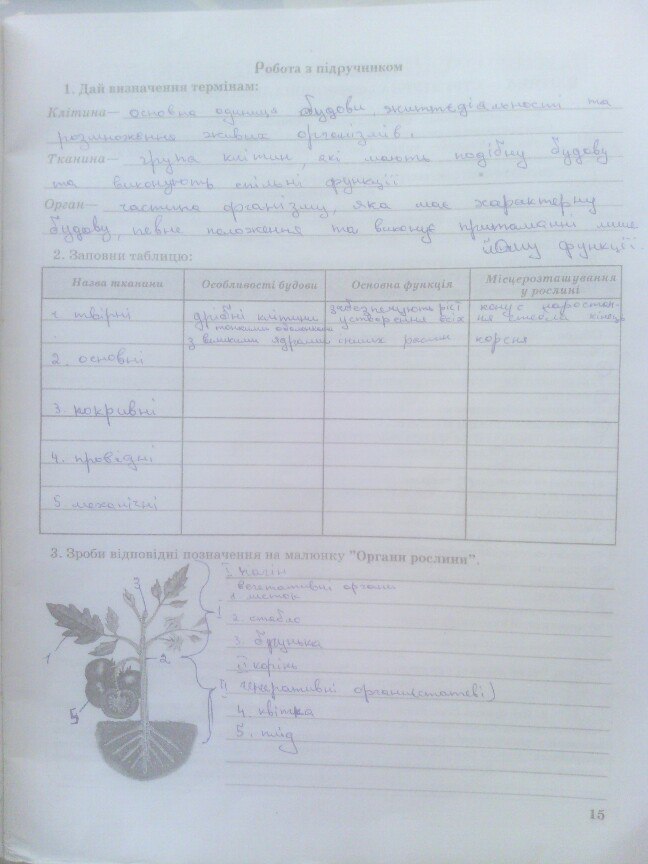 Робота з підручником
1. Дай визначення термінам:
Клітина— основна одиниця будови, життєдіяльності та
розмноження живих організмів.
Тканина— група клітин, які мають подібну будову
та виконують спільні функції
Орган— частина організму, яка має характерну
будову, певне положення та виконує притаманні лише
йому функції.
2. Заповни таблицю:
Назва тканини Особливості будови Основна функція Місцерозташування у рослині
1. твірні дрібні клітини забезпечують ріст конус наростан-
тонкими оболонками утворення всіх ня стебла кінець
з великими ядрами рослин кореня
2. основні
3. покривні
4. провідні
5. механічні
3. Зроби відповідні позначення на малюнку "Органи рослини".
І пагін
вегетативні органи
1. листок
2. стебло
3. брунька
ІІ корінь
ІІ генеративні органи(статеві)
4. квітка
5. плід
3
1
2
5
15